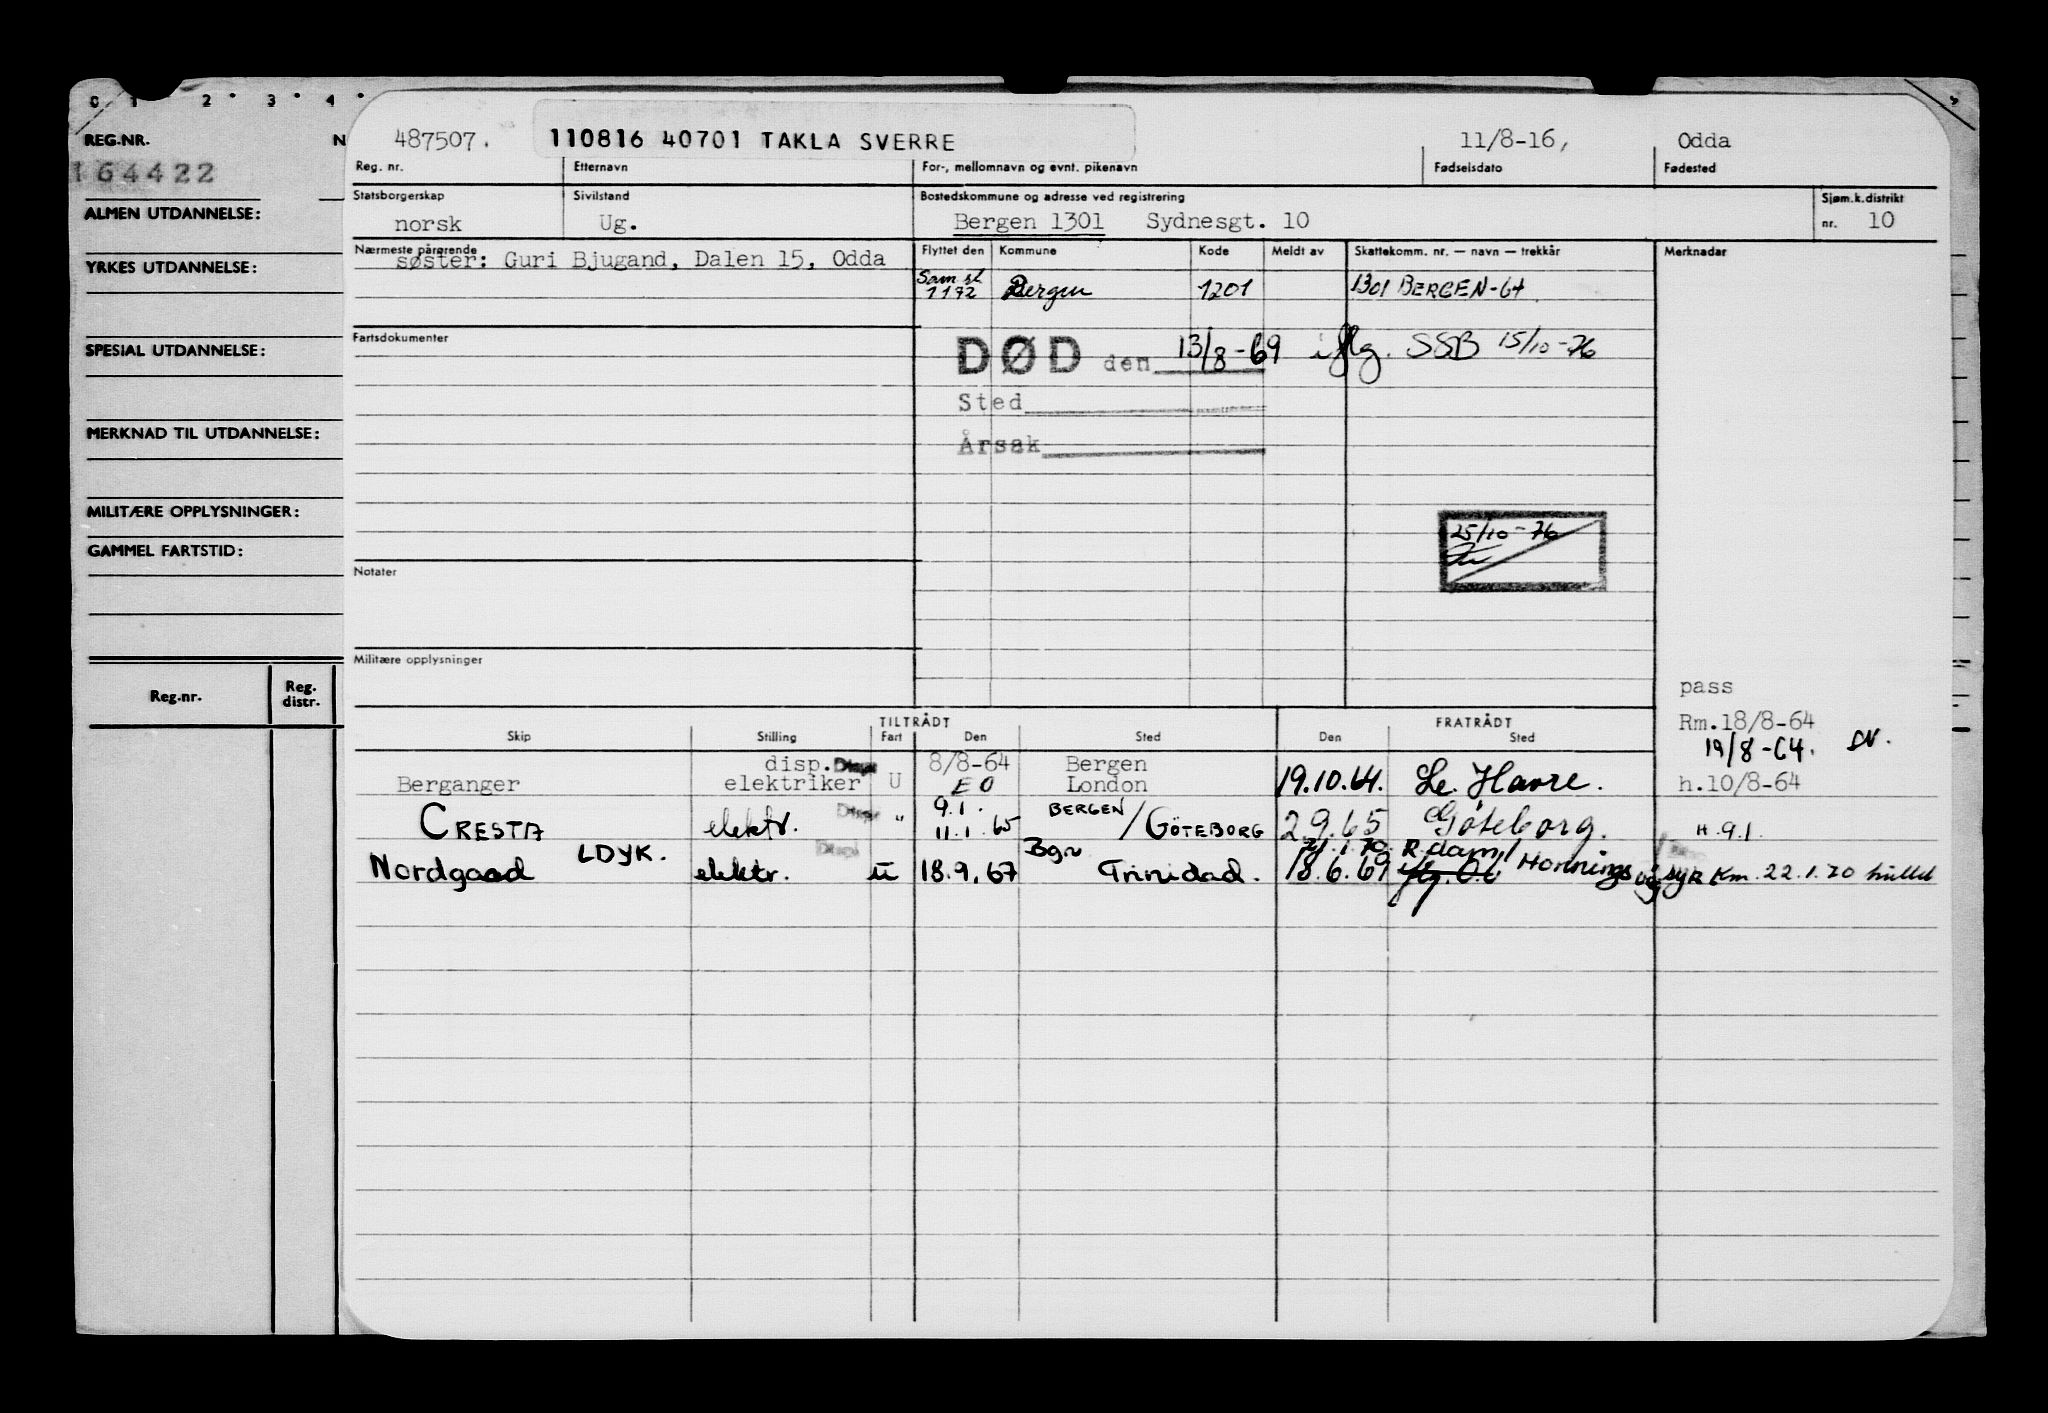 0 1 2 3 4
REG.NR. N
164422
ALMEN UTDANNELSE:
YRKES UTDANNELSE:
SPESIAL UTDANNELSE:
MERKNAD TIL UTDANNELSE:
MILITÆRE OPPLYSNINGER:
GAMMEL FARTSTID:
Reg.nr. Reg. distr.
487507. 110816 40701 TAKLA SVERRE 11/8-16, Odda
Reg. nr. Etternavn For-, mellomnavn og evnt. pikenavn Fødselsdato Fødested
Statsborgerskap Sivilstand Bostedskommune og adresse ved registrering Sjøm.k.distrikt
norsk Ug. Bergen 1301 Sydnesgt. 10 nr. 10
Nærmeste pårørende Flyttet den Kommune Kode Meldt av Skattekomm. nr. — navn — trekkår Merknadar
søster: Guri Bjugand, Dalen 15, Odda
Sam.sl
1172 Bergen 1201 1301 BERGEN-64
Fartsdokumenter
DØD den 13/8-69 iflg. SSB 15/10-76
Sted
Årsak
25/10-76
Notater
Militære opplysninger
pass
Rm.18/8-64
19/8-64.
TILTRÅDT FRATRÅDT
Skip Stilling Fart Den Sted Den Sted
disp. Disp 8/8-64 Bergen
Berganger elektriker U EO London 19.10.64. Le Havre. h.10/8-64
9.1. BERGEN
CRESTA elektr. Disp " 11.1.65 / GÖTEBORG 2.9.65 Göteborg. H.9.1.
LDYK. Bgn 21.1.70 R.dam
Nordgaad elektr. u 18.9.67 Trinidad. 18.6.69 Honningsvåg syk Rm. 22.1.70